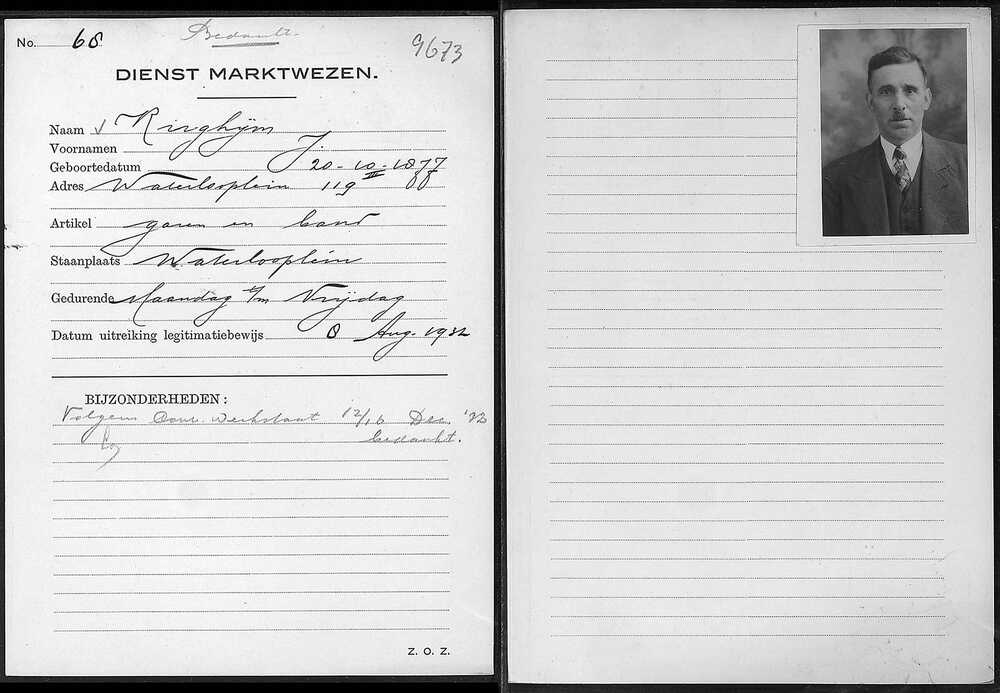 No. 68
Bedankt.
9673
DIENST MARKTWEZEN.
Naam √ Ringhijm
Voornamen J.
Geboortedatum 20-10-1877
Adres Waterlooplein 119 II
Artikel garen en band
Staanplaats Waterlooplein
Gedurende Maandag t/m Vrijdag
Datum uitreiking legitimatiebewijs 8 Aug. 1932
BIJZONDERHEDEN:
Volgens Contr. Weekstaat 12/16 Dec. '32
bedankt.
Z. O. Z.